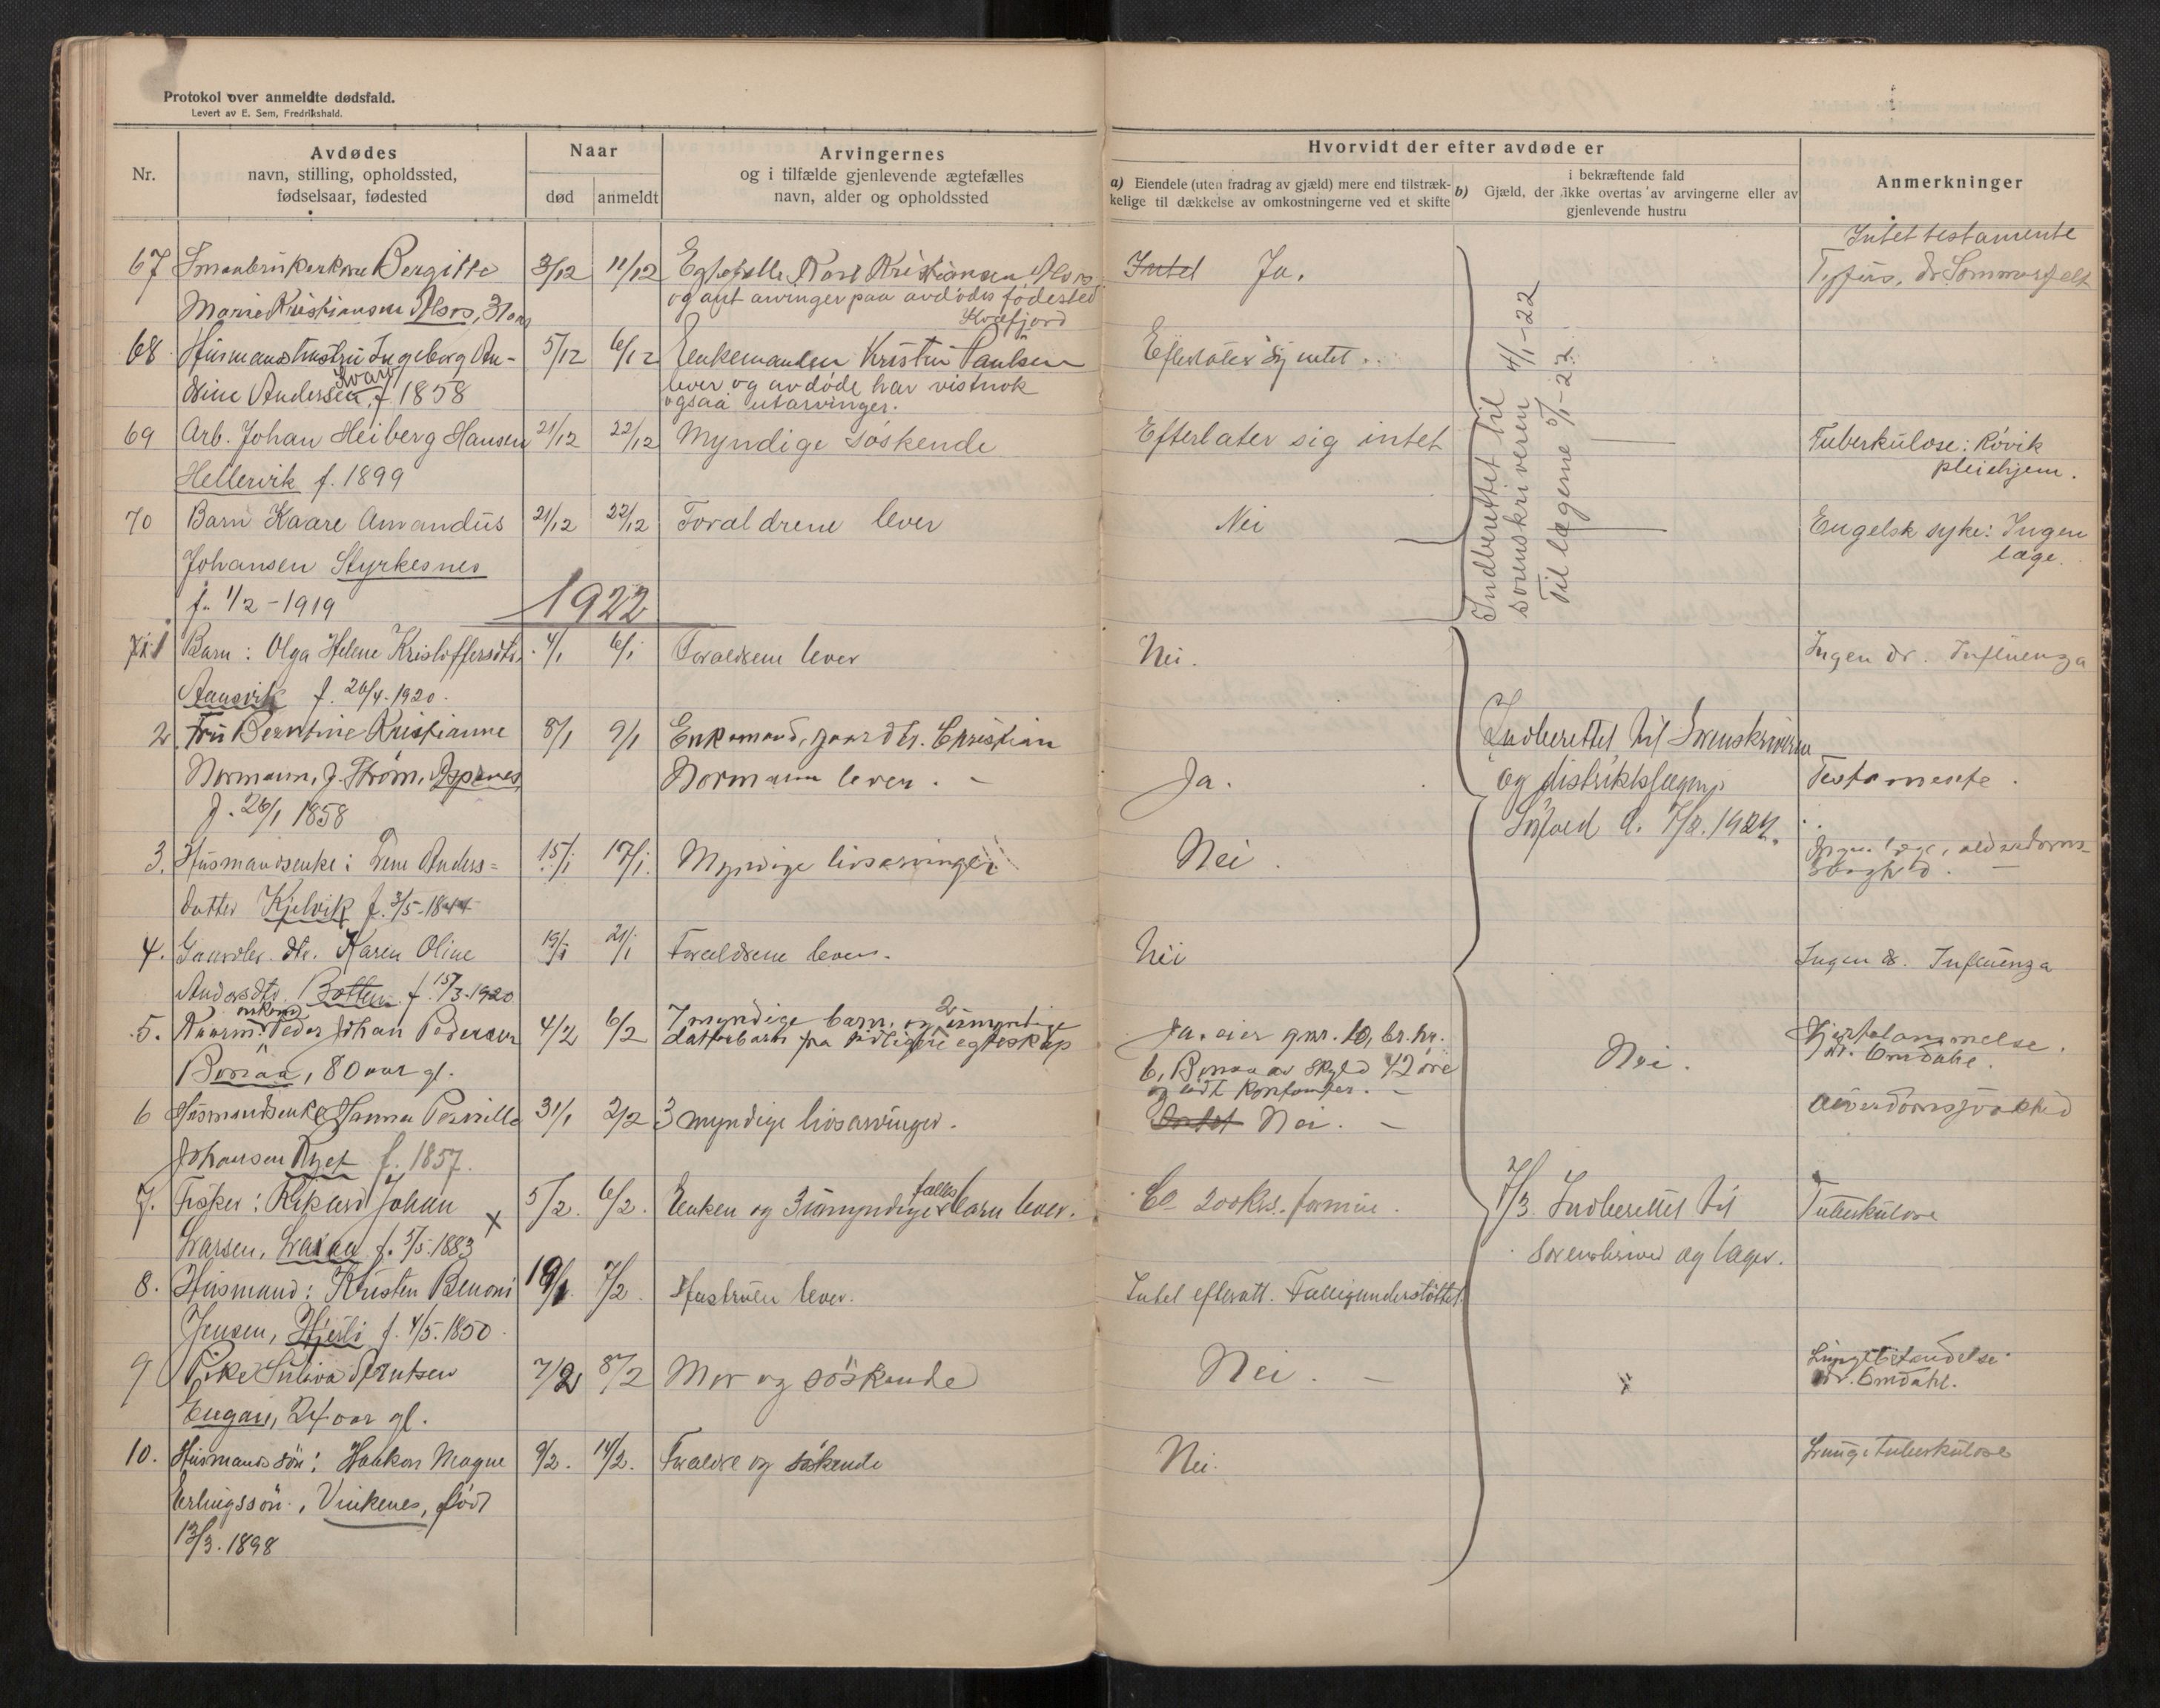 Protokol over anmeldte dødsfald.
Levert av E. Sem, Fredrikshald.
Nr.
Avdødes
navn, stilling, opholdssted,
fødselsaar, fødested
Naar
død
anmeldt
Arvingernes
og i tilfælde gjenlevende ægtefælles
navn, alder og opholdssted
Hvorvidt der efter avdøde er
a) Eiendele (uten fradrag av gjæld) mere end tilstræk-
kelige til dækkelse av omkostningerne ved et skifte
i bekræftende fald
b) Gjæld, der ikke overtas av arvingerne eller av
gjenlevende hustru
Anmerkninger
67 Smaabrukerkone Bergitte 3/12 11/12 Egtefelle Karl Kristiansen Alsos Intet Ja.
Marie Kristiansen Alsos, 31 aar
og ant arvinger paa avdødes fødested
Kvæfjord
Intet testamente
Tyfus, dr Sommerfelt
68 Husmandshustru Ingeborg An- 5/12 6/12 Enkemanden Kristen Paulsen Efterlater sig intet.
dine Andersen, f 1858
lever og avdøde har vistnok
ogsaa utarvinger.
69 Arb. Johan Heiberg Hansen 21/12 22/12 Myndige søskende Efterlater sig intet
Hellervik f. 1899
Tuberkulose: Røvik
pleiehjem.
70 Barn Kaare Amandus 21/12 22/12 Forældrene lever Nei
Johansen Styrkesnes
f. 1/2 - 1919
Engelsk syke: Ingen
læge.
Indberettet til
sorenskriveren 4/1-22
Til lægene 5/1-22.
1922
1 Barn: Olga Helene Kristoffersdtr. 4/1 6/1 Forældrene lever Nei. Ingen dr. Influenza
Aansvik f. 26/4.1920.
2. Fru Berntine Kristianne 8/1 9/1 Enkemand, gaardbr. Christian
Normann, f. Strøm, Aspenes Normann lever. Ja. Testamente.
f. 26/1 1858
3. Husmandsenke: Lene Anders- 15/1 17/1. Myndige livsarvinger Nei. Ingen læge, alderdoms-
datter Kjelvik f. 3/5-1844
Indberettet til Sorenskriveren
og distriktslægen i
4. Gaardbr. dtr. Karen Oline 19/1 21/1 Forældrene lever. Nei Ingen dr. Influenza
Andersdtr. Botten f. 15/3-1920
5. Peder Johan Pedersen 4/2 6/2 7 myndige barn, og 2 umyndige
datterbarn fra tidligere egteskap
Bonaa, 80 aar gl.
Ja. eier gnr. 10, br. nr.
6, Bonaa av skyld 42 øre
og litt kontanter.
Nei.
Hjertelammelse.
dr. Omdahl.
6 Husmandsenke Hanna Pernille 31/1 2/2 3 myndige livsarvinger. Intet Nei. Alderdomssvakhed
Johansen f. 1857.
7. Fisker: Rikard Johan 5/2. 6/2. Enken og 3 umyndige fælles barn lever. Ca 200 Krs. formue. Tuberkulose
Larsen, f. 5/5.1883 x
7/3. Indberettet til
Sorenskriver og læger.
8. Husmand: Kristen Benoni 19/1 7/2. Hustruen lever. Intet efterlatt. Fattigunderstøttet.
Jensen, f. 4/5.1850.
9 Pike Arntsen 7/2 8/2 Mor og søskende Nei. x
Engan, 24 aar gl.
Lungebetændelse
dr. Omdahl.
10. Husmandssøn: Haakon Magne 9/2. 14/2. Forældre og søskende Nei. Lungetuberkulose
Erlingssøn, Vinkenes, født
13/3.1898